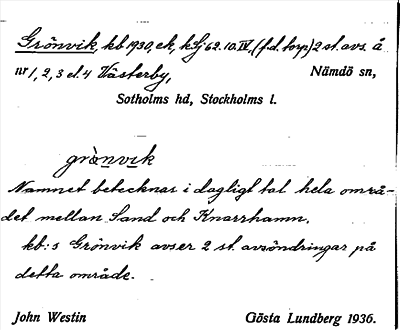 Grönvik, kb 1930, ek, kSj 62.10.IV, (f.d. torp) 2 st. avs. å
nr 1, 2, 3 el. 4 Västerby, Nämdö sn,
Sotholms hd, Stockholms l.
grö̀nvik
Namnet betecknar i dagligt tal hela områ-
det mellan Sand och Knarrhamn.
kb:s Grönvik avser 2 st. avsöndringar på
detta område.
John Westin Gösta Lundberg 1936.